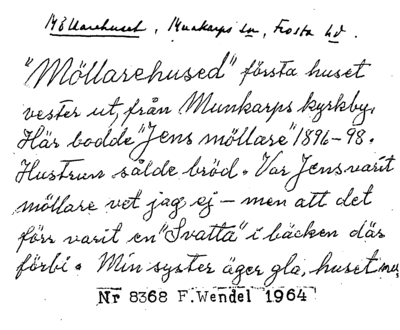 Möllarehuset, Munkarps sn, Frosta hd.
"Möllarehused" första huset
vester ut, från Munkarps kyrkby.
Här bodde "Jens möllare" 1896-98.
Hustrun sålde bröd. Var Jens varit
möllare vet jag ej - men att det
förr varit en "Svatta" i bäcken där
förbi. Min syster äger gla, huset nu,
Nr 8368 F.Wendel 1964